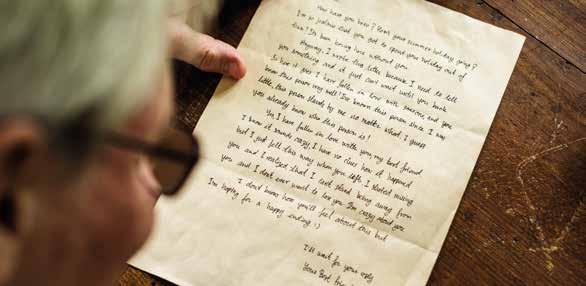 How have you been? How's your summer holiday going?
I'm so jealous that you got to spend your holiday out of
town! It's been boring here without you.
Anyway, I wrote this letter because I need to tell
you something and it just can't wait until you back.
So here it goes, I have fallen in love with someone and you
know this person very well! I've known this person since I was
little, this person stands by me no matter what. I guess
you already know who this person is!
Yes, I have fallen in love with you, my best friend.
I know it sounds crazy, I have no clues how it happened
but I just felt this way when you left. I started missing
you and I realized that I can't stand being away from
you and I don't ever want to lose you. I'm crazy about you.
I don't know how you'll feel about this but
I'm hoping for a happy ending :)
I'll wait for your reply
Your Best